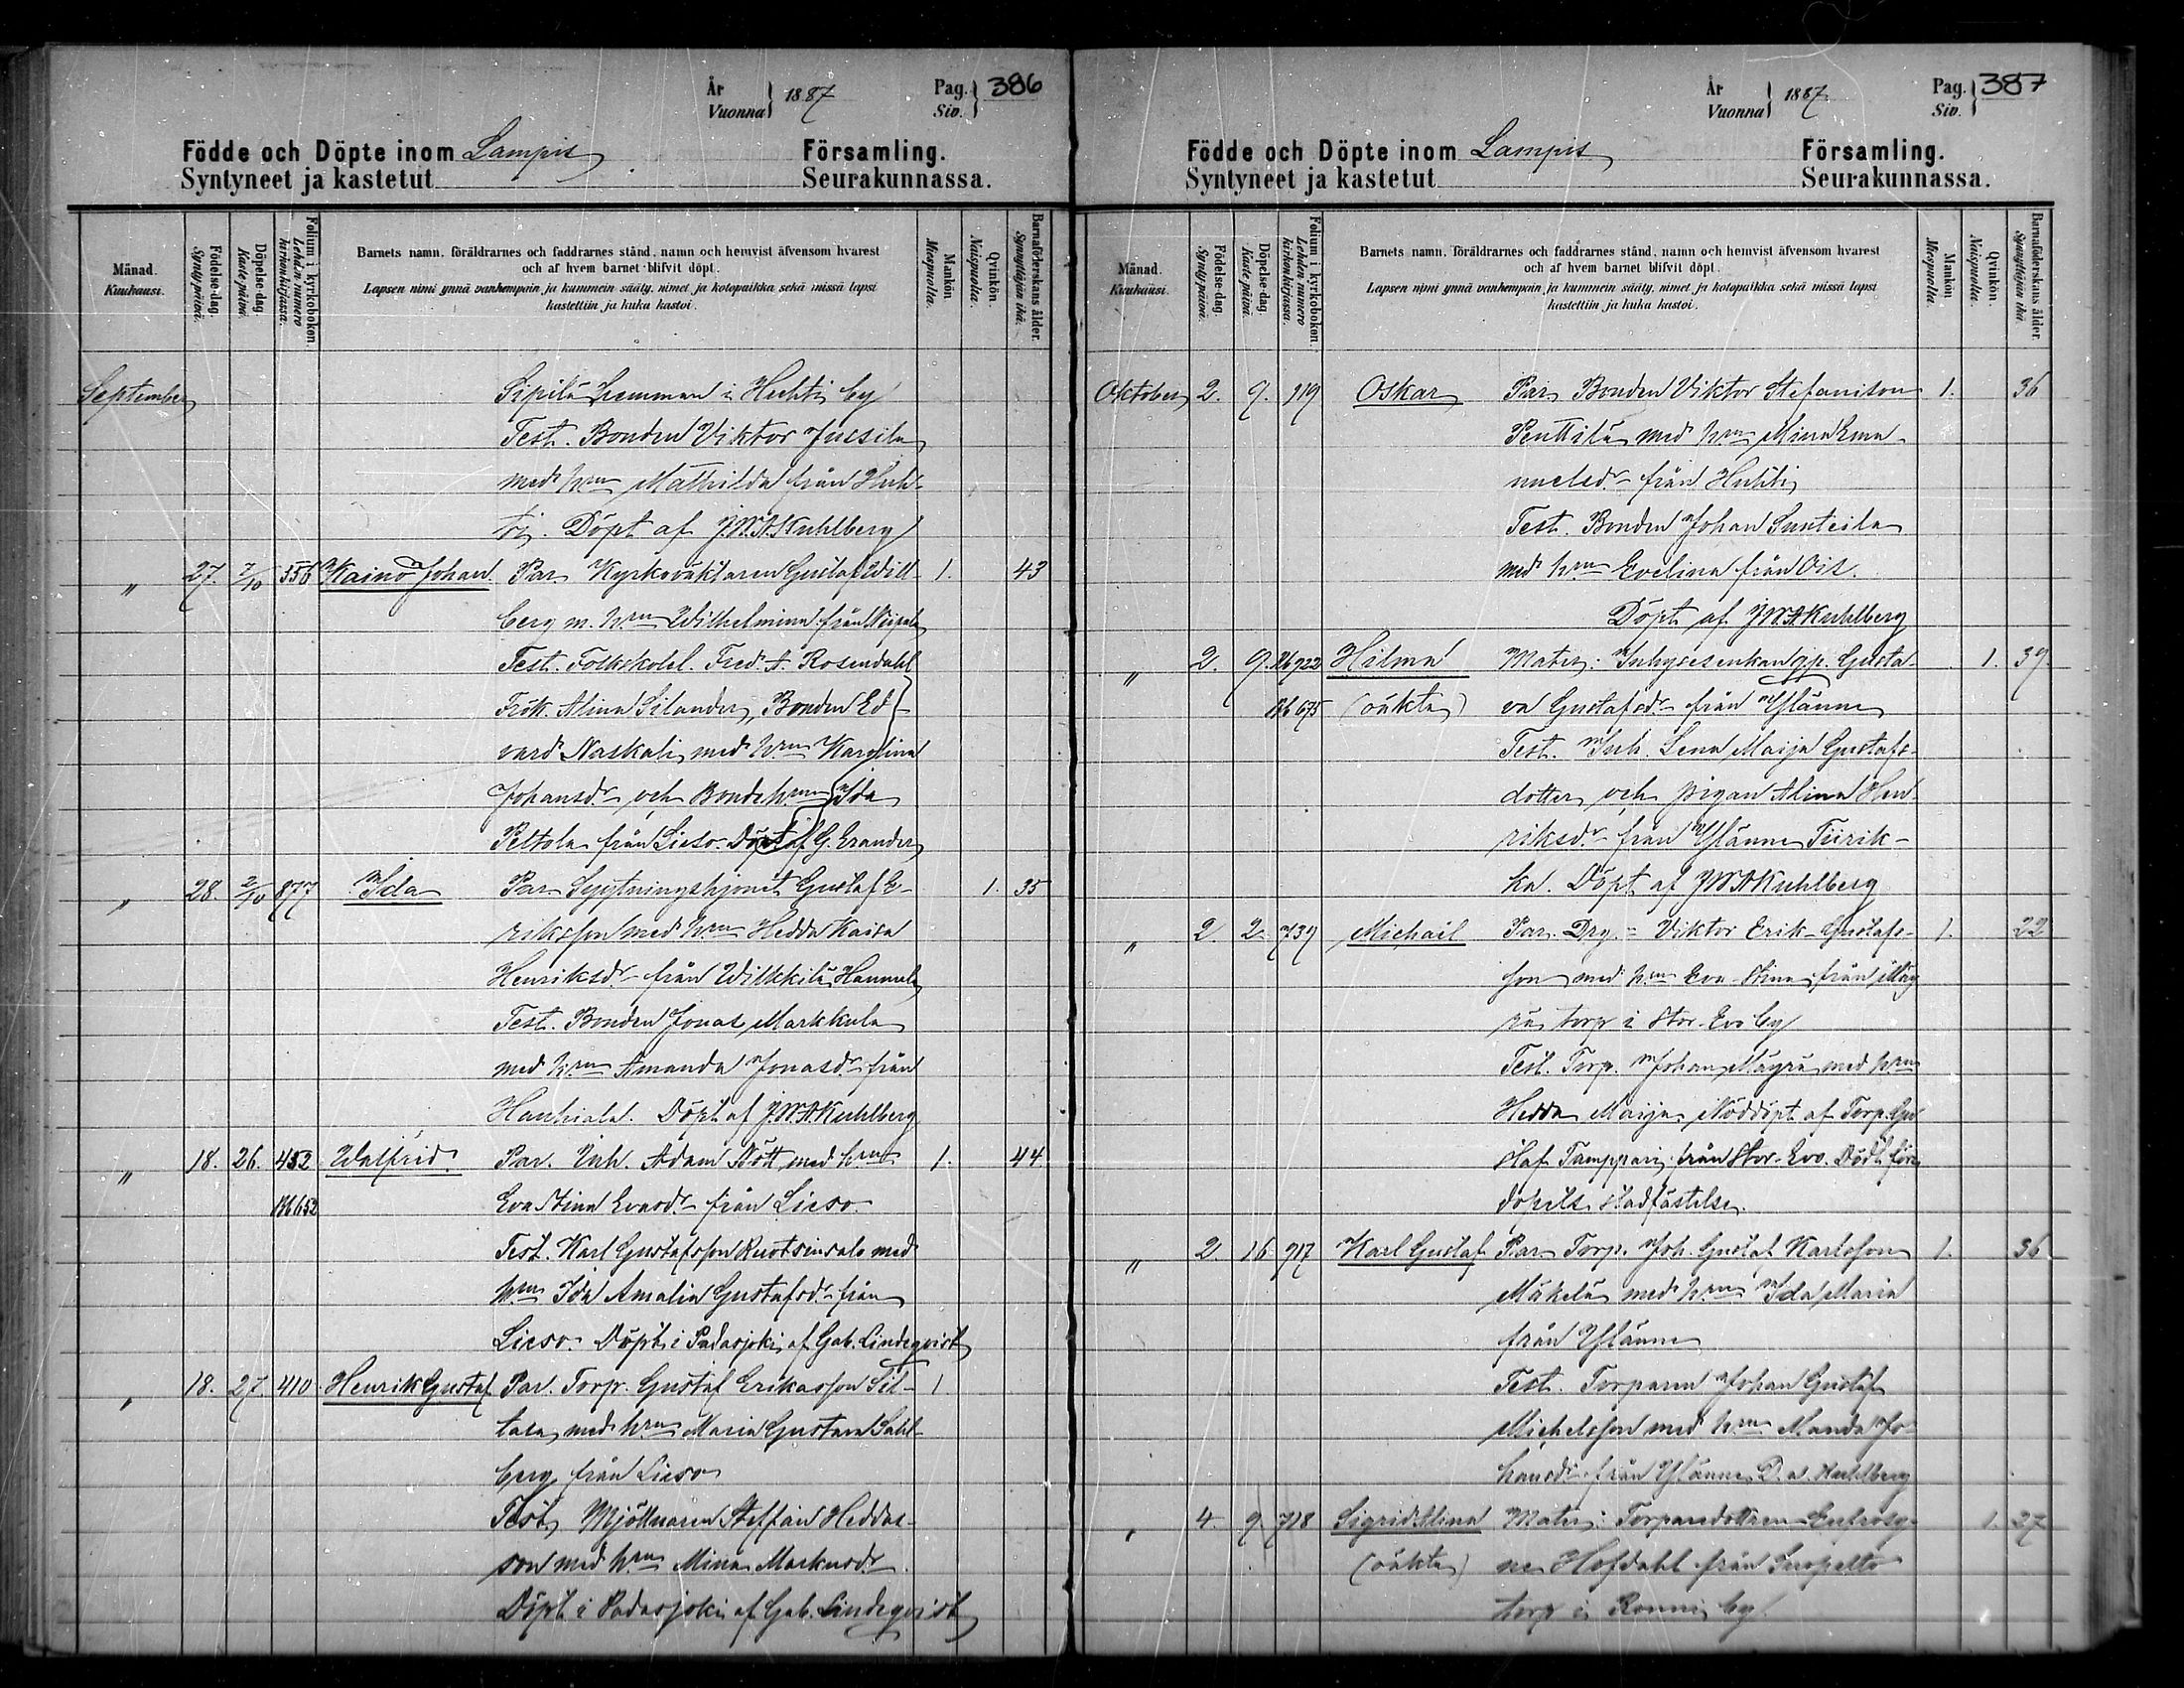 År
Vuonna } 1887
Pag.
Siv. } 386
Födde och Döpte inom Lampis Församling.
Syntyneet ja kastetut Seurakunnassa.
Månad.
Kuukausi.
Födelse-dag.
Syntypäivä.
Döpelse-dag.
Kastepäivä.
Folium i kyrkobokon.
Lehden numero
kirkonkirjassa.
Barnets namn, föräldrarnes och faddrarnes stånd, namn och hemvist äfvensom hvarest
och af hvem barnet blifvit döpt.
Lapsen nimi ynnä vanhempain ja kummein sääty, nimet ja kotopaikka sekä missä lapsi
kastettiin ja kuka kastoi.
Mankön.
Miespuolia.
Qvinkön.
Naispuolia.
Barnaföderskans ålder.
Synnyttäjän ikä.
September Sipilä hemman i Huhti by
Test. Bonden Viktor Jussila
med h:run Mathilda från Huh-
ti. Döpt af J.W.A. Kuhlberg
" 27. 7/10 356 Kaino Johan. Par Kyrkoväktaren Gustaf Will- 1. 43
berg m. h:run Wilhelmina från
Test. Folkskolel. Fred. A. Rosendahl
Frök. Alina Silander, Bonden Ed-
vard Naskali med h:run Karolina
Johansdr och Bondeh:run Ida
Peltola från Lieso. Döpt af G. Erander
" 28. 2/10 877 Ida Par. Sytningshjonet Gustaf E- 1. 35
riksson med h:run Hedda Kaisa
Henriksdr från Wilkkilä Hannula
Test. Bonden Jonas Markkula
med h:run Amanda Jonasdr från
Hauhiala. Döpt af J.W.A. Kuhlberg
" 18. 26. 452 Walfrid. Par. Inh. Adam Nött med h:run 1. 44
652 Eva Stina Evasdr från Lieso.
Test. Karl Gustafsson Ruotsinsalo med
h:run Ida Amalia Gustafsdr från
Lieso. Döpt i Padasjoki af Gab. Lindeqvist
" 18. 27 410 Henrik Gustaf Par. Torp. Gustaf Erikasson Sil- 1
tasa, med h:run Maria Gustava Sahl-
berg från Lieso
Test. Mjölnaren Steffan Heddas-
son med h:run Mina Markusdr.
Döpt i Padasjoki af Gab. Lindeqvist
År
Vuonna } 1887.
Pag.
Siv. } 387
Födde och Döpte inom Lampis Församling.
Syntyneet ja kastetut Seurakunnassa.
Månad.
Kuukausi.
Födelse-dag.
Syntypäivä.
Döpelse-dag.
Kastepäivä.
Folium i kyrkobokon.
Lehden numero
kirkonkirjassa.
Barnets namn, föräldrarnes och faddrarnes stånd, namn och hemvist äfvensom hvarest
och af hvem barnet blifvit döpt.
Lapsen nimi ynnä vanhempain ja kummein sääty, nimet ja kotopaikka sekä missä lapsi
kastettiin ja kuka kastoi.
Mankön.
Miespuolia.
Qvinkön.
Naispuolia.
Barnaföderskans ålder.
Synnyttäjän ikä.
Oktober 2. 9. 119 Oskar Par. Bonden Viktor Stefanison 1. 36
Penttilä med h:run Mina Ema-
nuelsdr från Huhti
Test. Bonden Johan Sunteila
med h:run Evelina från Ois.
Döpt af J.W.A. Kuhlberg
" 2. 9. 922 Hilma Mater: Inhysesenkan Gusta- 1. 39.
675 (oäkta) va Gustafsdr från Ylänne
Test. Inh. Lena Maija Gustafs-
dotter och pigan Alina Hen-
riksdr från Ylänne Tiirik-
ka. Döpt af J.W.A. Kuhlberg
" 2. 2. 739 Michail Par. Drg. Viktor Erik Gustafs- 1. 22
son med h:run Eva Stina från Mäy
rä torp i Stor-Evo by
Test. Torp. Johan Mäyrä med h:run
Hedda Maija. Nöddöpt af Torp. Gu
staf Tamppari från Stor-Evo. Död före
dopets stadfästelse.
" 2. 16 917 Karl Gustaf Par. Torp. Joh. Gustaf Karlsson 1. 36
Mäkelä med h:run Ida Maria
från Ylänne
Test. Torparen Johan Gustaf
Michelsson med h:run Manda Jo-
hansdr från Ylänne D. a. Kuhlberg
" 4. 9. 718 Sigrid Alina Mater: Torparedottren Eufrosy- 1. 27
(oäkta) ne Hofdahl från Suopelto
torp i Ronni by.